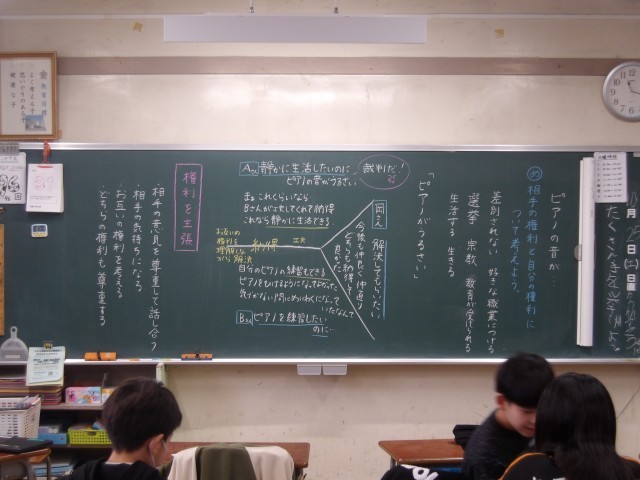 ピアノの音が…
め 相手の権利と自分の権利に
ついて考えよう。
差別されない 好きな職業につける
選挙 宗教 教育が受けられる
生活する 生きる
「ピアノがうるさい」
Aさん 静かに生活したいのに
ピアノの音がうるさい
裁判だ!
まぁ これくらいなら
Bさんが
これなら静かに生活できる
周人
解決してもらいたい
今後も仲良く
どちらも納得して
良かった
お互いの
権利を
理解
解決
納得
工夫
自分のピアノの練習もできる
ピアノをひけるようになってよかった
気づかない内にめいわくになって
いたなんて
Bさん ピアノを練習したい
のに…
権利を主張
・相手の意見を尊重して話し合う
・相手の気持ちになる
・お互いの権利を考える
・どちらの権利も尊重する
月25日(土)日直